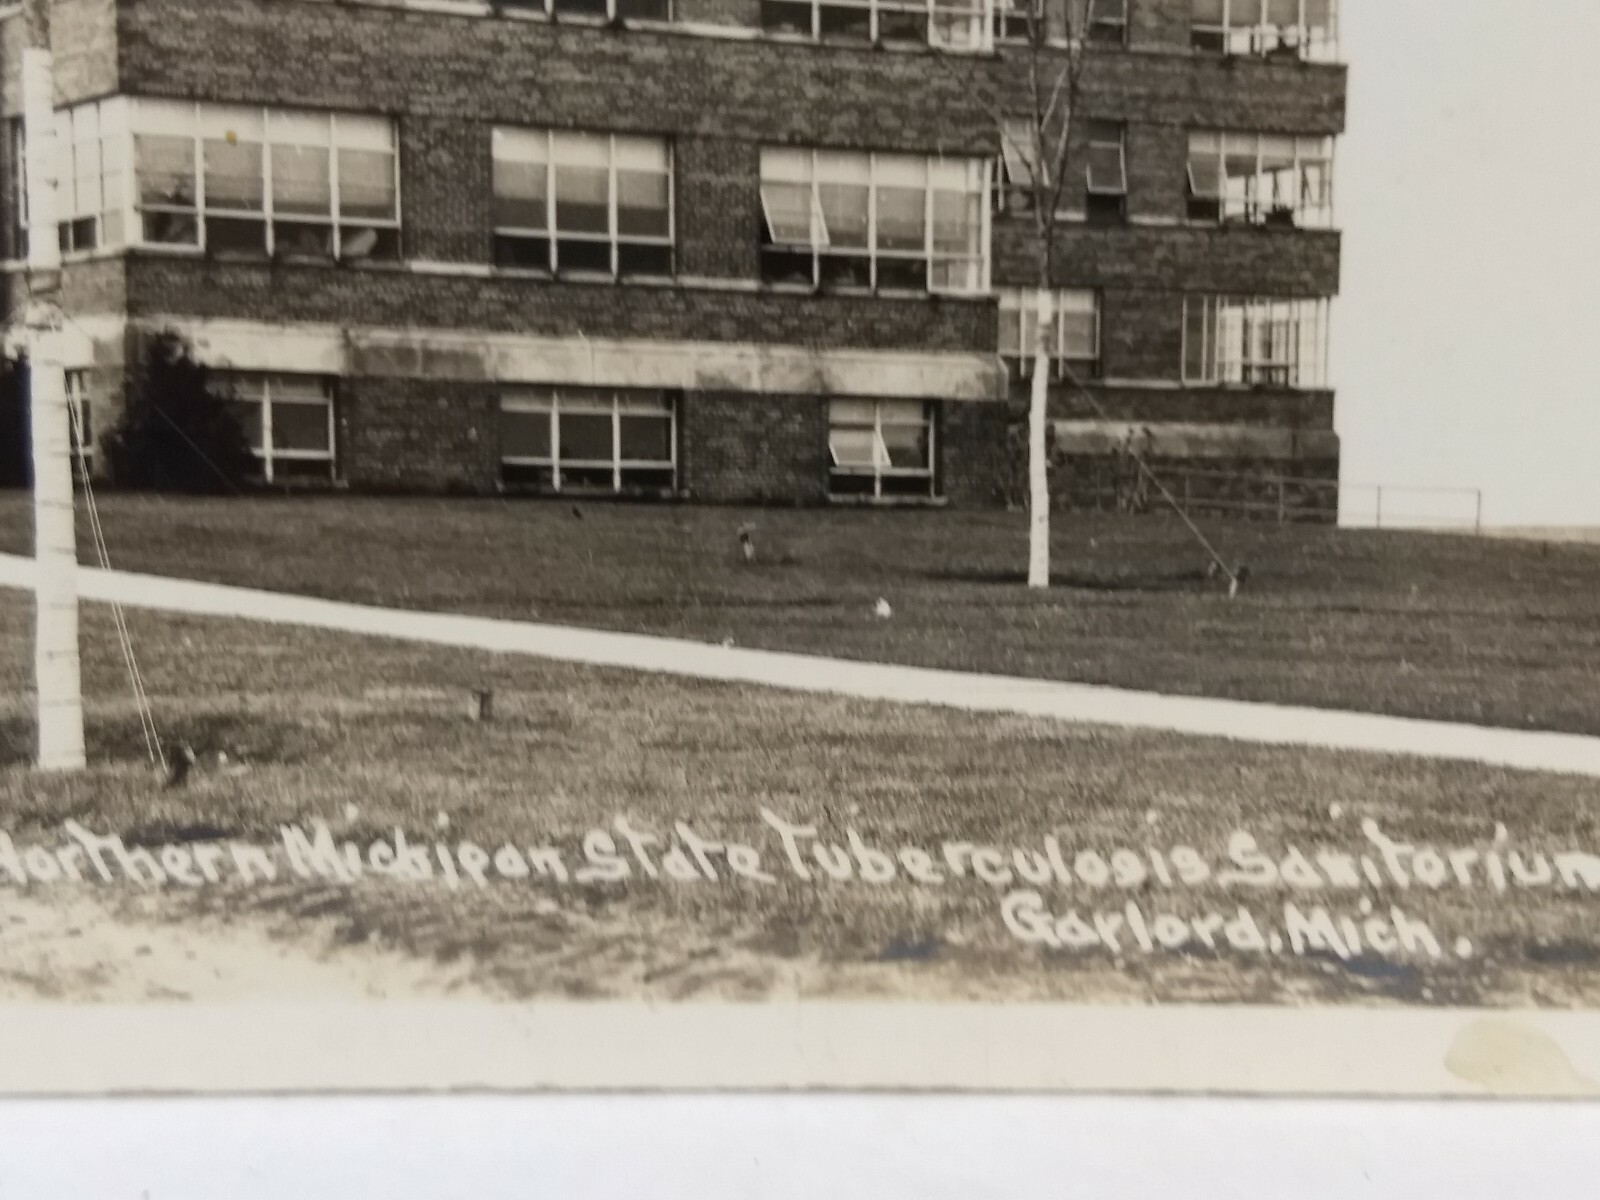 Northern Michigan State Tuberculosis Sanitorium
Gaylord, Mich.